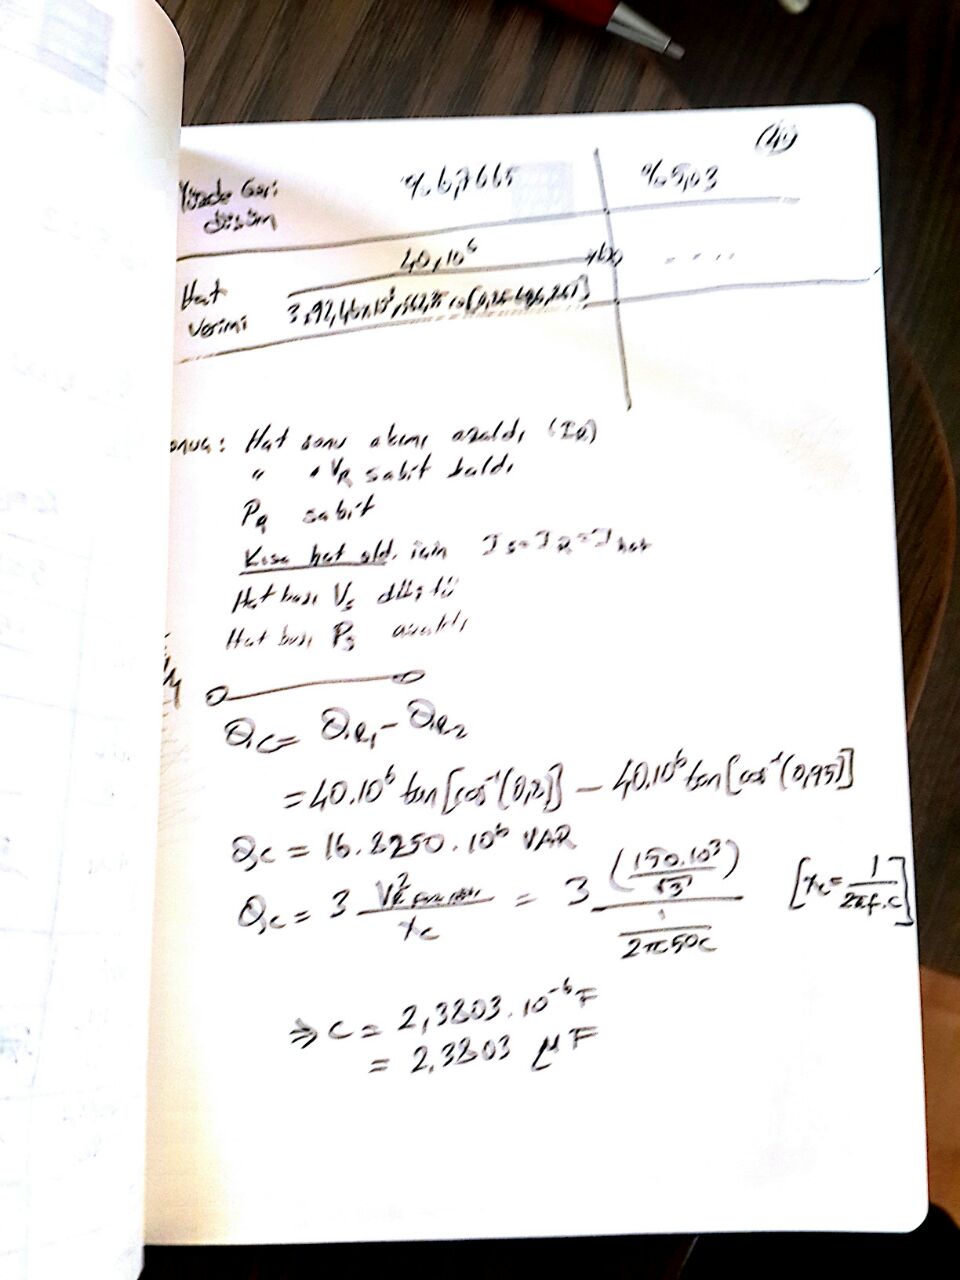 (4)
Yüzde Geri %6,7665 %5,03
düşüm
Hat 40.10⁶
verimi
onuç: Hat sonu akımı azaldı (I_R)
" " V_R sabit kaldı
P_R sabit
Kısa hat old. için I_S = I_R = I_hat
Hat başı V_S düştü
Hat başı P_S azaldı
Q_C = Q_R₁ - Q_R₂
= 40.10⁶ tan[cos⁻¹(0,8)] - 40.10⁶ tan[cos⁻¹(0,95)]
Q_C = 16.8250.10⁶ VAR
Q_C = 3 V_R² / X_C = 3 (150.10³/√3) / (1/2π50C) [X_C = 1/2πf.C]
⇒ C = 2,3803.10⁻⁶ F
= 2,3803 μF